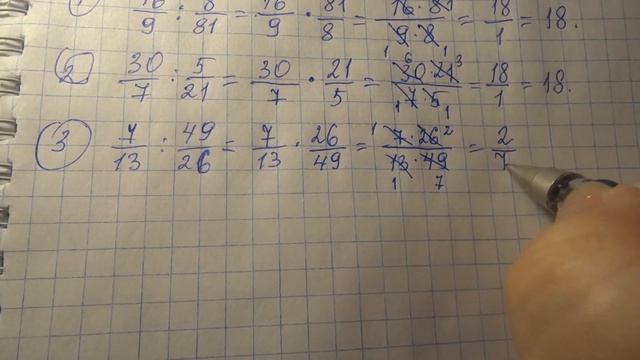 1) 16/9 : 8/81 = 16/9 · 81/8 = 16·81/9·8 = 18/1 = 18.
2) 30/7 : 5/21 = 30/7 · 21/5 = 30·21/7·5 = 18/1 = 18.
3 7/13 : 49/26 = 7/13 · 26/49 = 7·26/13·49 = 2/7